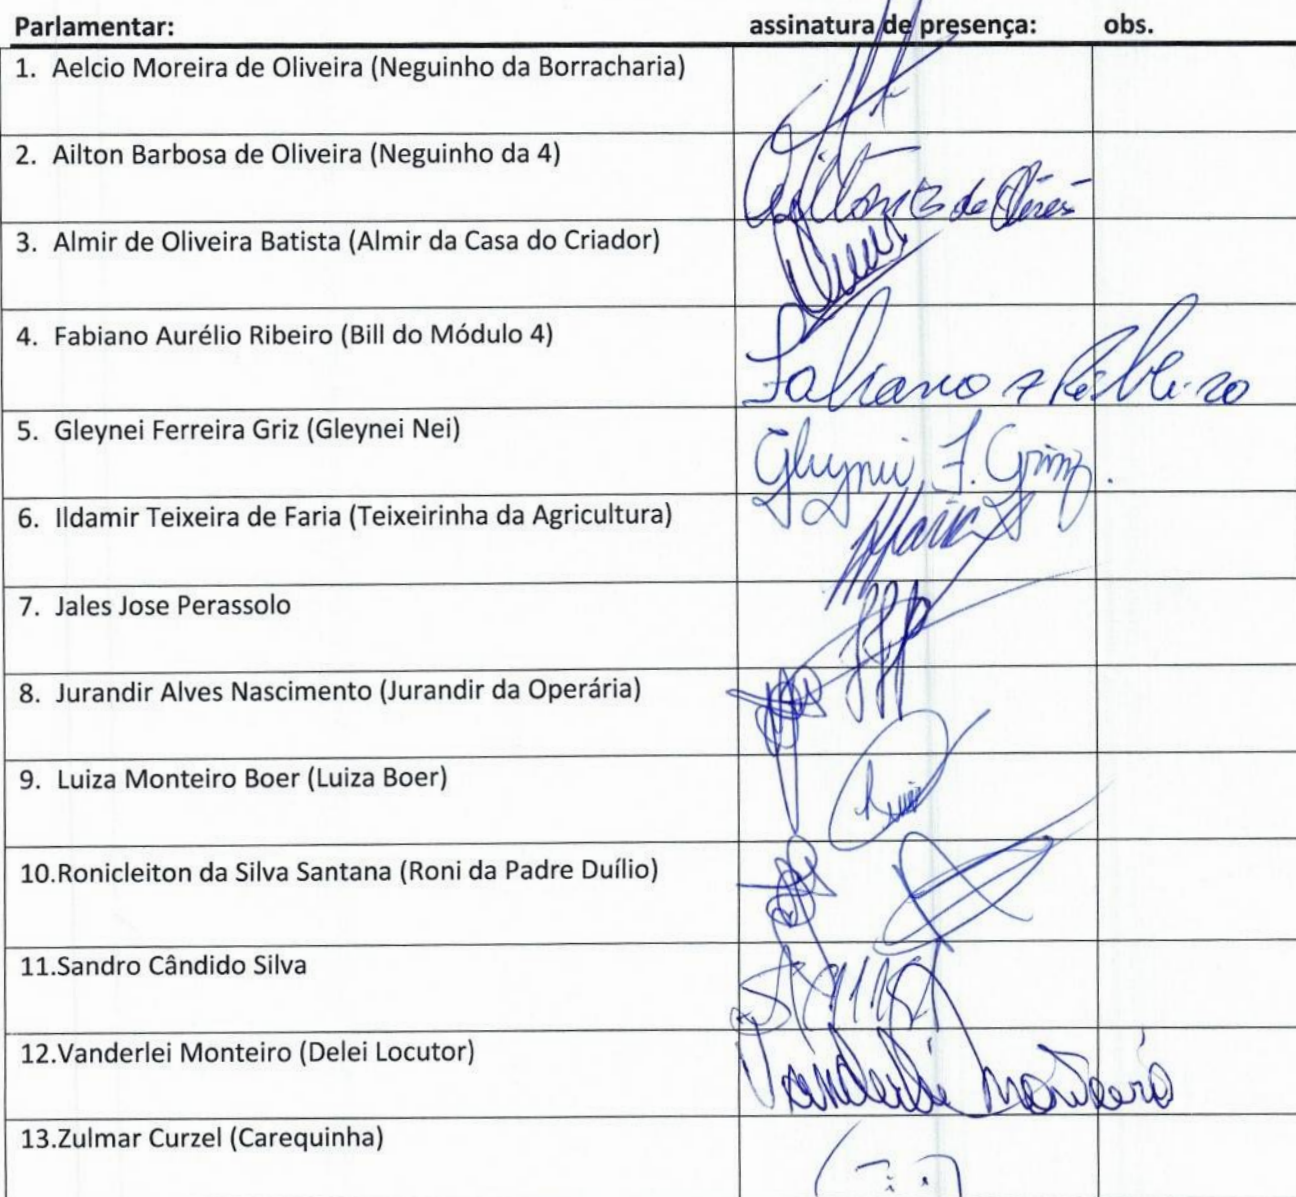 Parlamentar: assinatura de presença: obs.
1. Aelcio Moreira de Oliveira (Neguinho da Borracharia)
2. Ailton Barbosa de Oliveira (Neguinho da 4)
Ailton B de
3. Almir de Oliveira Batista (Almir da Casa do Criador)
4. Fabiano Aurélio Ribeiro (Bill do Módulo 4)
Fabiano A Ribeiro
5. Gleynei Ferreira Griz (Gleynei Nei)
Gleynei F. Griz.
6. Ildamir Teixeira de Faria (Teixeirinha da Agricultura)
7. Jales Jose Perassolo
8. Jurandir Alves Nascimento (Jurandir da Operária)
9. Luiza Monteiro Boer (Luiza Boer)
10.Ronicleiton da Silva Santana (Roni da Padre Duílio)
11.Sandro Cândido Silva
12.Vanderlei Monteiro (Delei Locutor)
Vanderlei Monteiro
13.Zulmar Curzel (Carequinha)